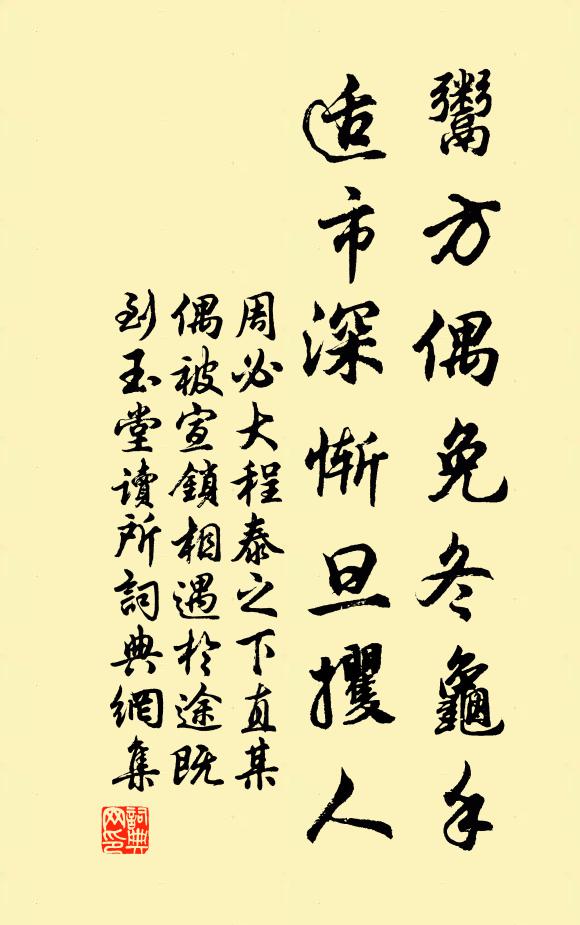 鬻方偶免冬龜手
適市深慚旦攫人
周必大程泰之下直某
偶被宣鎖相遇於途既
到玉堂讀所詞典網集
詞典網印